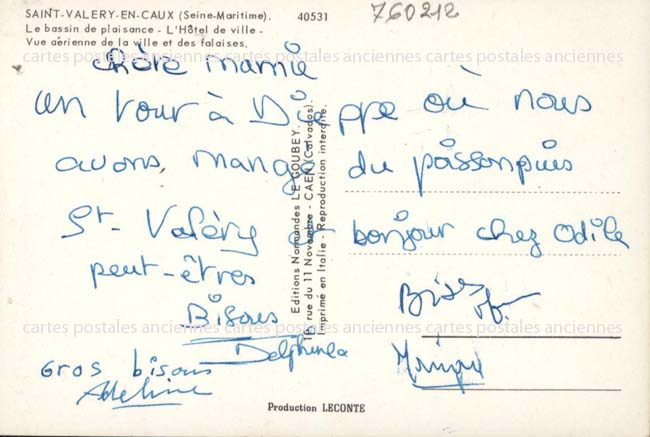 SAINT-VALERY-EN-CAUX (Seine-Maritime). 40531 760212
Le bassin de plaisance - L'Hôtel de ville -
Vue aérienne de la ville et des falaises.
chère mamie
un tour à Dieppe où nous
avons, mangé du poisson puis
St-Valéry bonjour chez Odile
peut-êtres
Bisous
Delphine
Gros bisous
Adeline
Bises
Monique
Editions Normandes LE GOUBEY.
16 rue du 11 Novembre - CAEN (Calvados).
Imprimé en Italie - Reproduction interdite.
Production LECONTE
cartes postales anciennes cartes postales anciennes cartes postales anciennes
cartes postales anciennes cartes postales anciennes cartes postales anciennes
cartes postales anciennes cartes postales anciennes cartes postales anciennes